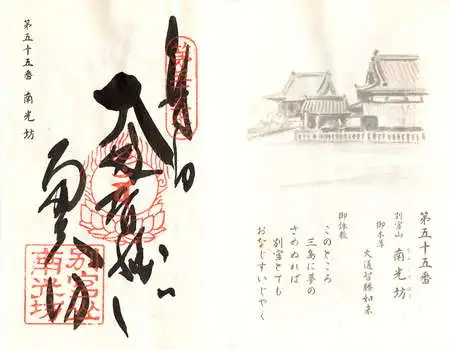 第五十五番
別宮山 南光坊
御本尊 大通智勝如来
御詠歌
このところ
三島に夢の
さめぬれば
別宮とても
おなじすいじやく
南光坊
別宮山
南光坊
第五十五番 南光坊